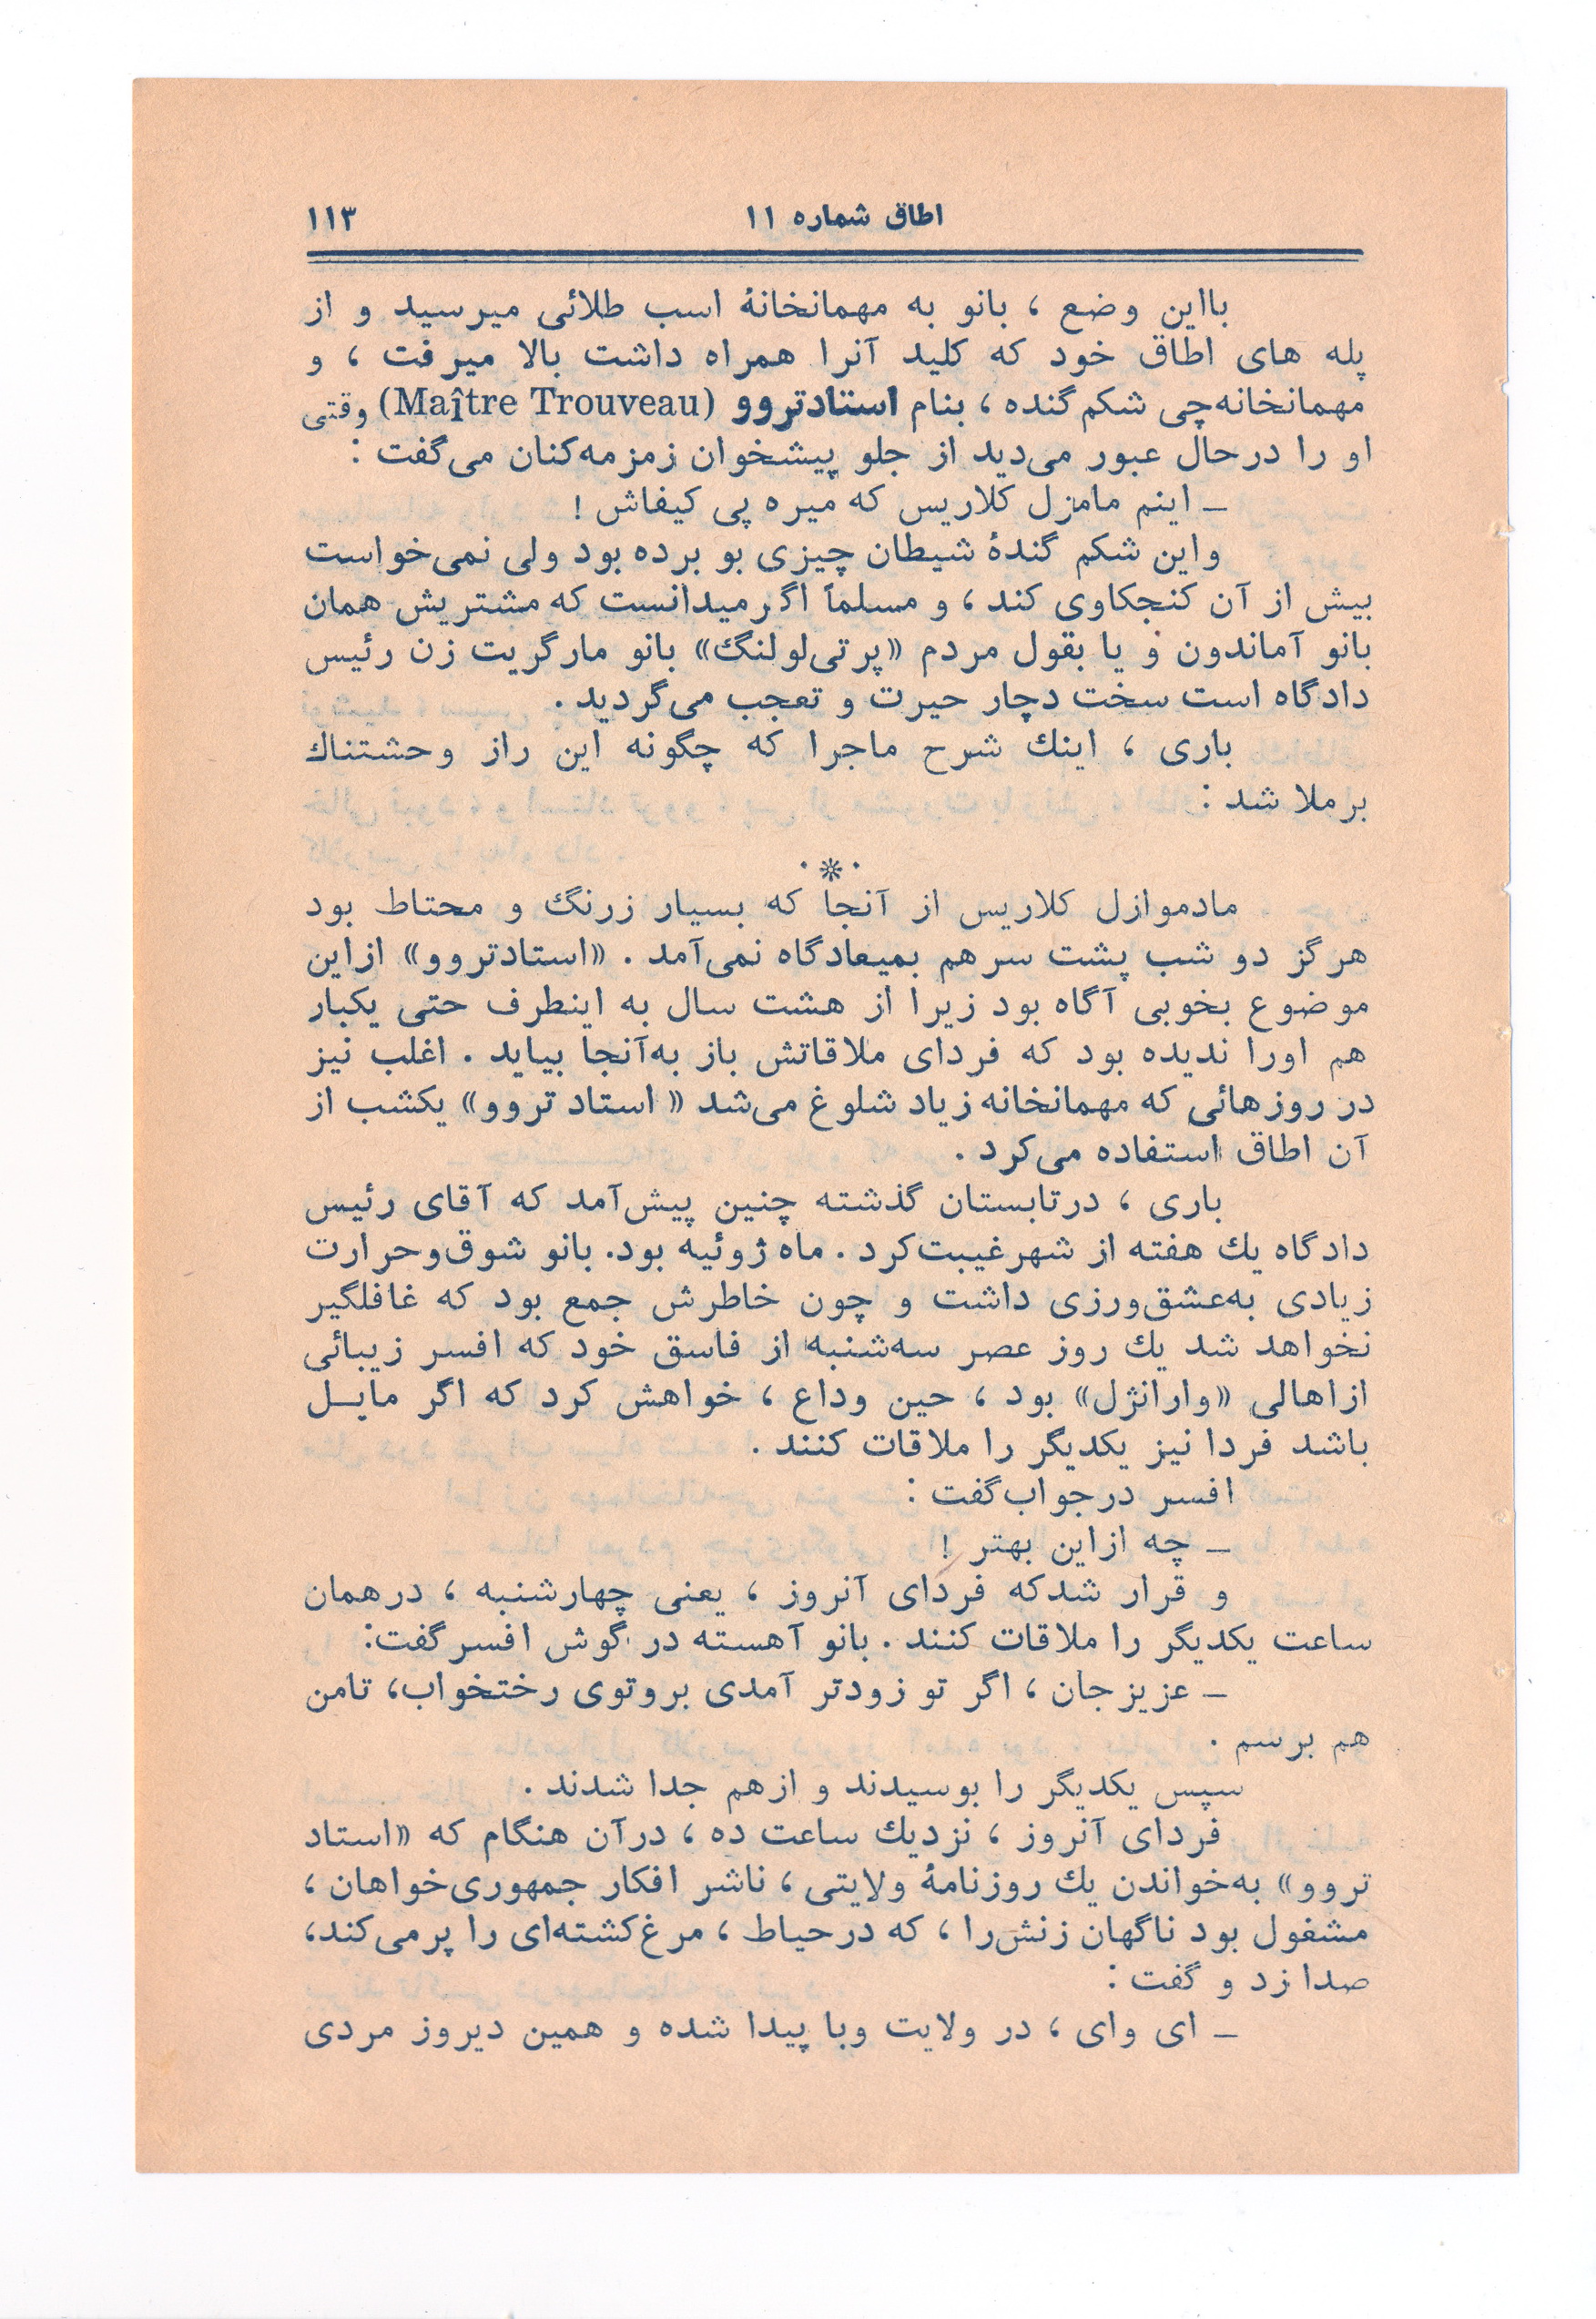 اطاق شماره ۱۱
۱۱۳
بااین وضع ، بانو به مهمانخانهٔ اسب طلائی میرسید و از
پله های اطاق خود که کلید آنرا همراه داشت بالا میرفت ، و
مهمانخانه‌چی شکم گنده ، بنام استادتروو (Maître Trouveau) وقتی
او را درحال عبور می‌دید از جلو پیشخوان زمزمه‌کنان می‌گفت :
ـ اینم مامزل کلاریس که میره پی کیفاش !
واین شکم گندهٔ شیطان چیزی بو برده بود ولی نمی‌خواست
بیش از آن کنجکاوی کند ، و مسلماً اگر میدانست که مشتریش همان
بانو آماندون و یا بقول مردم «پرتی‌لولنگ» بانو مارگریت زن رئیس
دادگاه است سخت دچار حیرت و تعجب می‌گردید .
باری ، اینك شرح ماجرا که چگونه این راز وحشتناك
برملا شد :
٠*٠
مادموازل کلاریس از آنجا که بسیار زرنگ و محتاط بود
هرگز دو شب پشت سر هم بمیعادگاه نمی‌آمد . «استادتروو» ازاین
موضوع بخوبی آگاه بود زیرا از هشت سال به اینطرف حتی یکبار
هم اورا ندیده بود که فردای ملاقاتش باز به‌آنجا بیاید . اغلب نیز
در روزهائی که مهمانخانه زیاد شلوغ می‌شد « استاد تروو» یکشب از
آن اطاق استفاده می‌کرد .
باری ، درتابستان گذشته چنین پیش‌آمد که آقای رئیس
دادگاه یك هفته از شهر غیبت‌کرد . ماه ژوئیه بود. بانو شوق‌وحرارت
زیادی به‌عشق‌ورزی داشت و چون خاطرش جمع بود که غافلگیر
نخواهد شد یك روز عصر سه‌شنبه از فاسق خود که افسر زیبائی
ازاهالی «وارانژل» بود ، حین وداع ، خواهش کرد که اگر مایـل
باشد فردا نیز یکدیگر را ملاقات کنند .
افسر درجواب‌گفت :
ـ چه ازاین بهتر !
و قرار شدکه فردای آنروز ، یعنی چهارشنبه ، درهمان
ساعت یکدیگر را ملاقات کنند . بانو آهسته در گوش افسر گفت:
ـ عزیزجان ، اگر تو زودتر آمدی بروتوی رختخواب، تامن
هم برسم .
سپس یکدیگر را بوسیدند و ازهم جدا شدند .
فردای آنروز ، نزدیك ساعت ده ، درآن هنگام که «استاد
تروو» به‌خواندن یك روزنامهٔ ولایتی ، ناشر افکار جمهوری‌خواهان ،
مشغول بود ناگهان زنش‌را ، که درحیاط ، مرغ‌کشته‌ای را پرمی‌کند،
صدا زد و گفت :
ـ ای وای ، در ولایت وبا پیدا شده و همین دیروز مردی